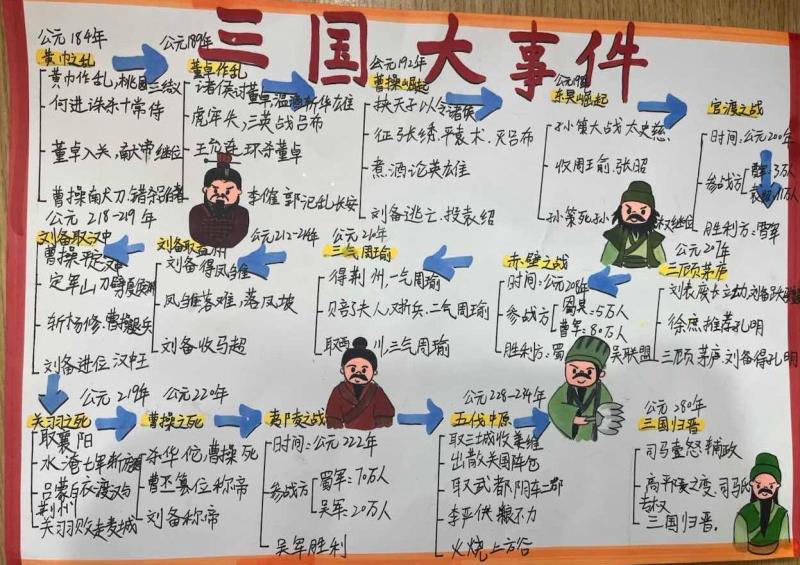 三国大事件
公元184年
黄巾之乱
黄巾作乱,桃园三结义
何进诛杀十常侍
董卓入关,献帝继位
曹操献刀,错杀伯奢
公元189年
董卓作乱
诸侯讨董,温酒斩华雄
虎牢关,三英战吕布
王允连环杀董卓
李傕郭汜乱长安
公元192年
曹操崛起
挟天子以令诸侯
征张绣,平袁术,灭吕布
煮酒论英雄
刘备逃亡,投袁绍
东吴崛起
孙策大战太史慈
收周王俞,张昭
孙策死孙
权继位
官渡之战
时间:公元200年
参战方
曹军:3万人
袁绍:11万人
胜利方:曹军
公元207年
三顾茅庐
徐庶推荐孔明
三顾茅庐,刘备得孔明
赤壁之战
时间:公元208年
参战方
蜀吴=5万人
曹军=80万人
胜利方:蜀吴联盟
三气周瑜
得荆州,一气周瑜
贝咅了夫人,又折兵,二气周瑜
取西川,三气周瑜
公元212-214年
刘备取益州
刘备得凤雏
凤雏落难,落凤坡
刘备收马超
公元218-219年
刘备取汉中
曹操平定汉中
斩杨修,曹操退兵
刘备进位汉中王
公元219年
关羽之死
取襄阳
水淹七军
吕蒙白衣渡江
荆州
关羽败走麦城
公元220年
曹操之死
杀华佗,曹操死
曹丕篡位称帝
刘备称帝
夷陵之战
时间:公元222年
参战方
蜀军:70万人
吴军:20万人
吴军胜利
公元228-234年
五伐中原
取三城收姜维
取武都阴平二郡
李严供粮不力
火烧上方谷
公元280年
三国归晋
司马懿怒辅政
高平陵之变,司马氏
专权
三国归晋.